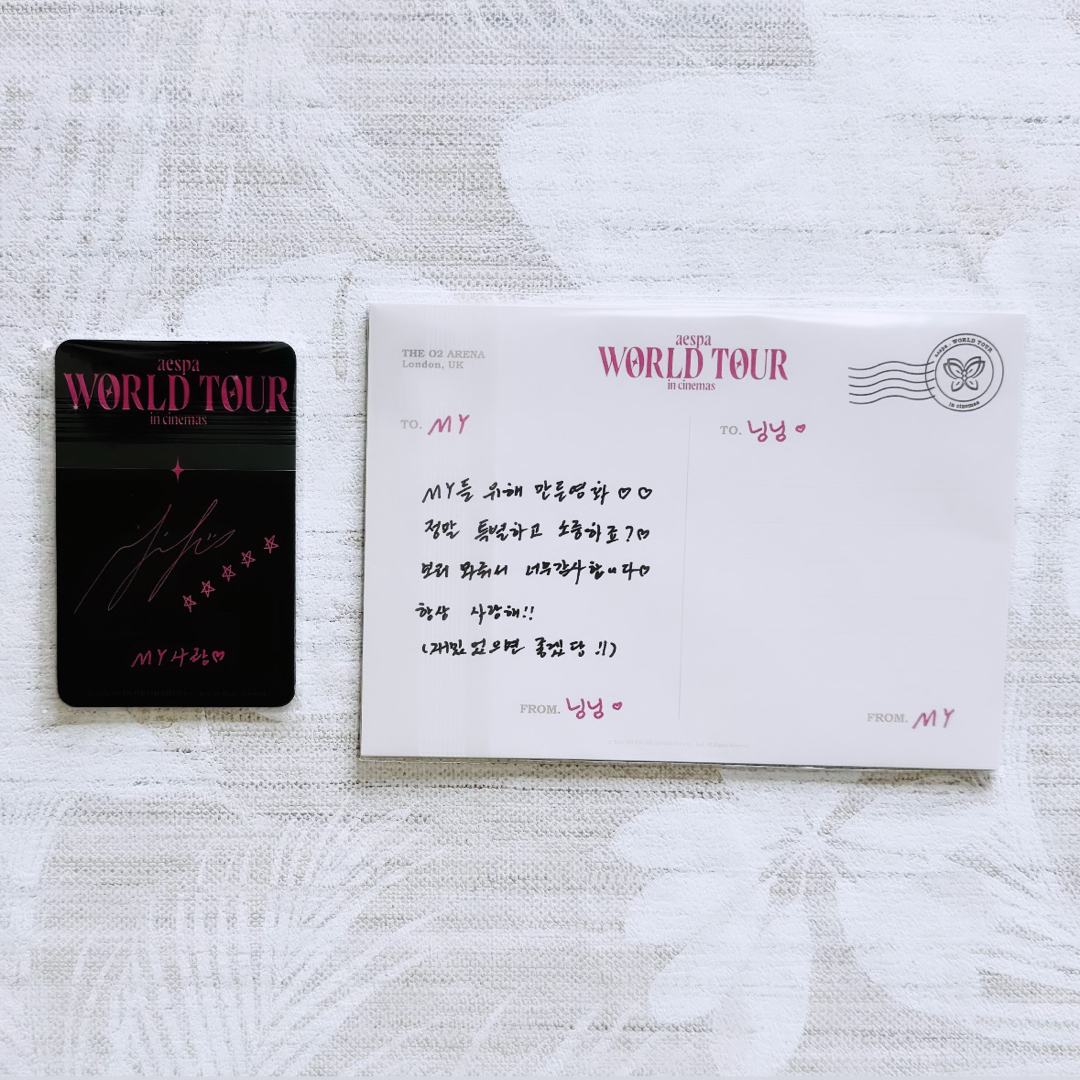 aespa
WORLD TOUR
in cinemas
MY 사랑♡
THE O2 ARENA
London, UK
aespa
WORLD TOUR
in cinemas
aespa . WORLD TOUR
in cinemas
TO. MY
MY들 위해 만든영화 ♡ ♡
정말 특별하고 소중하죠?♡
보러 와줘서 너무감사합니다♡
항상 사랑해!!
(재밌었으면 좋겠당 !!)
FROM. 닝닝 ♡
TO. 닝닝 ♡
FROM. MY